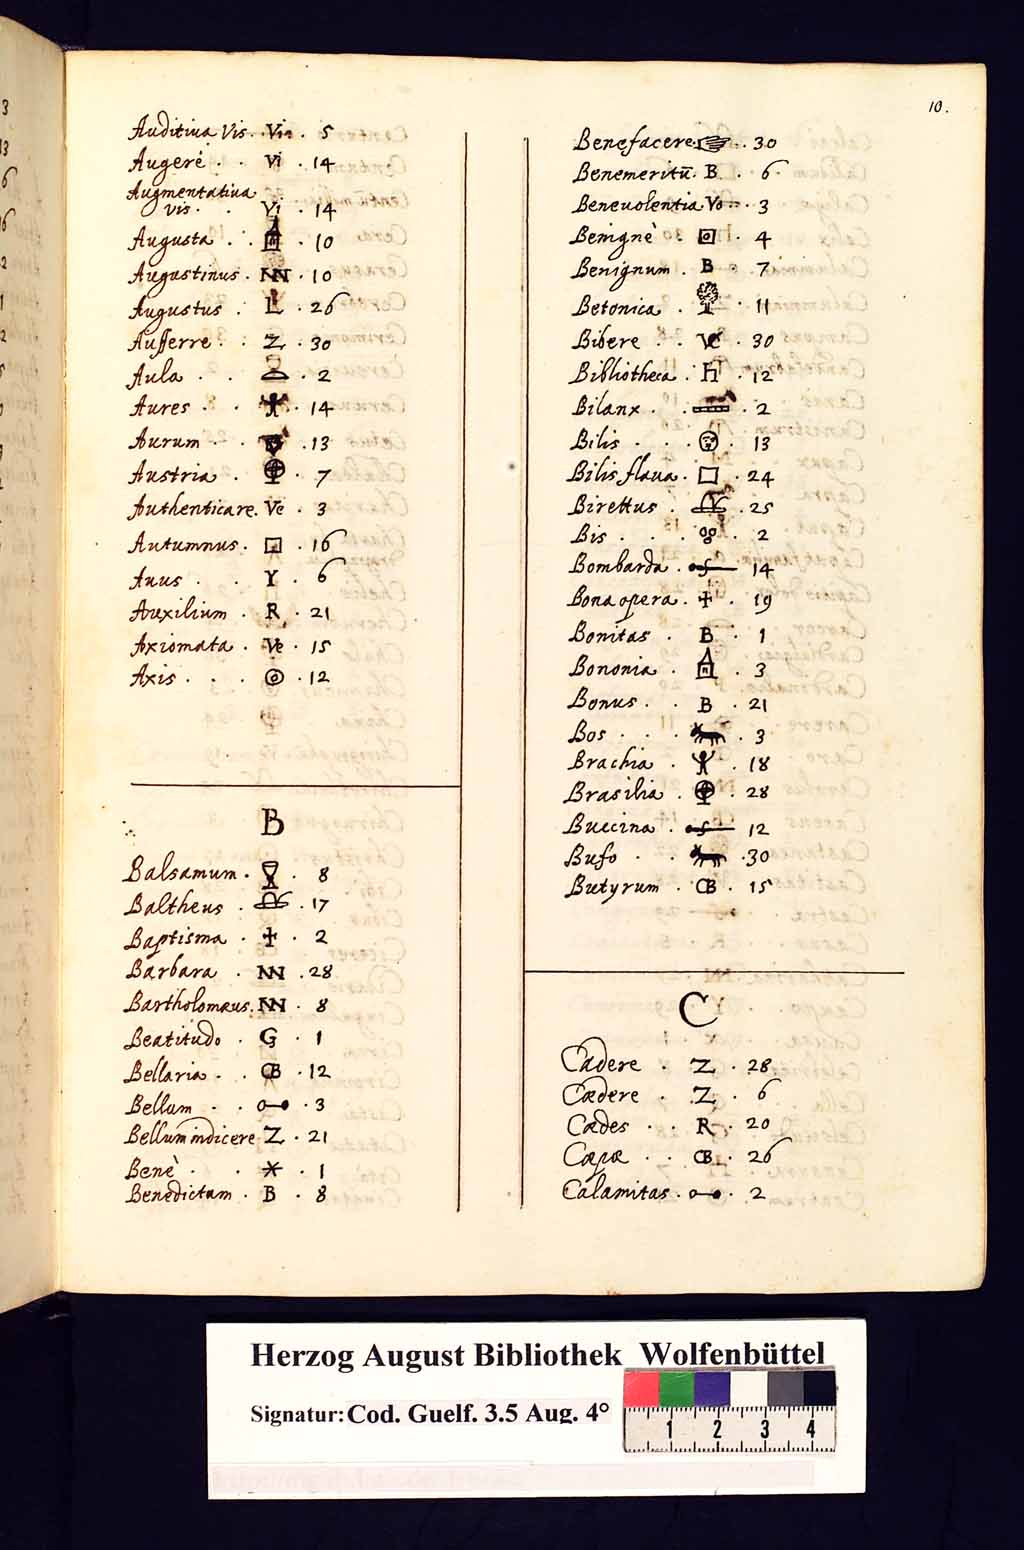 10.
Auditiua Vis. Vi. 5
Augere. Vi. 14
Augmentatiua
vis. Vi. 14
Augusta. 10
Augustinus. NN. 10
Augustus. L. 26
Aufferre. Z. 30
Aula. 2
Aures. 14
Aurum. 13
Austria. 7
Authenticare. Ve. 3
Autumnus. 16
Auus. Y. 6
Auxilium. R. 21
Axiomata. Ve. 15
Axis. 12
B
Balsamum. 8
Baltheus. 17
Baptisma. 2
Barbara. NN. 28
Bartholomæus. NN. 8
Beatitudo. G. 1
Bellaria. CB. 12
Bellum. 3
Bellum indicere Z. 21
Benè. 1
Benedictam. B. 8
Benefacere. 30
Benemeritū. B. 6
Beneuolentia Vo. 3
Benignè. 4
Benignum. B. 7
Betonica. 11
Bibere. Ve. 30
Bibliotheca. 12
Bilanx. 2
Bilis. 13
Bilis flaua. 24
Birettus. 25
Bis. 2
Bombarda. 14
Bona opera. 19
Bonitas. B. 1
Bononia. 3
Bonus. B. 21
Bos. 3
Brachia. 18
Brasilia. 28
Buccina. 12
Bufo. 30
Butyrum. CB. 15
C
Cadere. Z. 28
Cædere. Z. 6
Cædes. R. 20
Cæpæ. CB. 26
Calamitas. 2
Herzog August Bibliothek Wolfenbüttel
Signatur: Cod. Guelf. 3.5 Aug. 4°
1 2 3 4